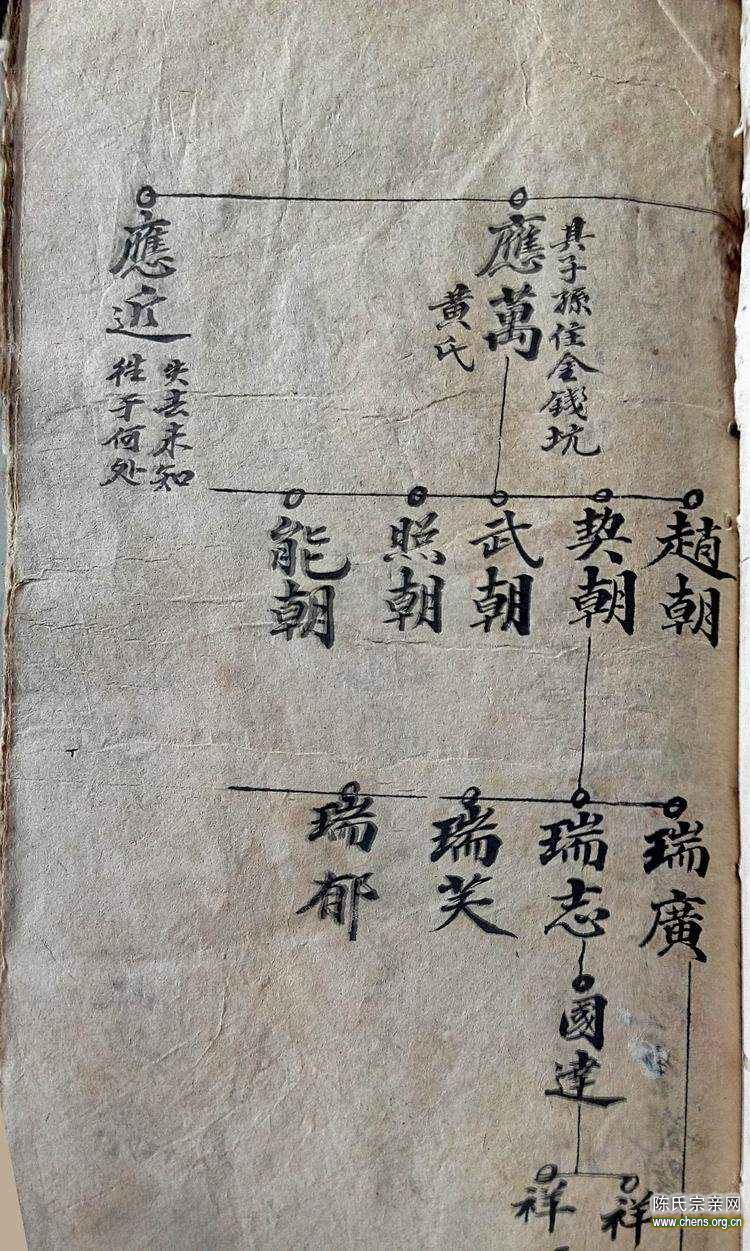 應萬
其子孫住金錢坑
黄氏
應近
失去未知
往于何处
趙朝
契朝
武朝
照朝
能朝
瑞廣
瑞志
瑞芙
瑞郁
國達
祥
祥
陈氏宗亲网
www.chens.org.cn